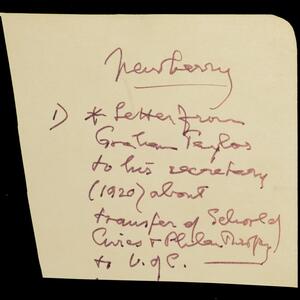 Newberry
1) * Letter from
Graham Taylor
to his secretary
(1920) about
transfer of School of
Civics + Philanthropy
to U. of C.